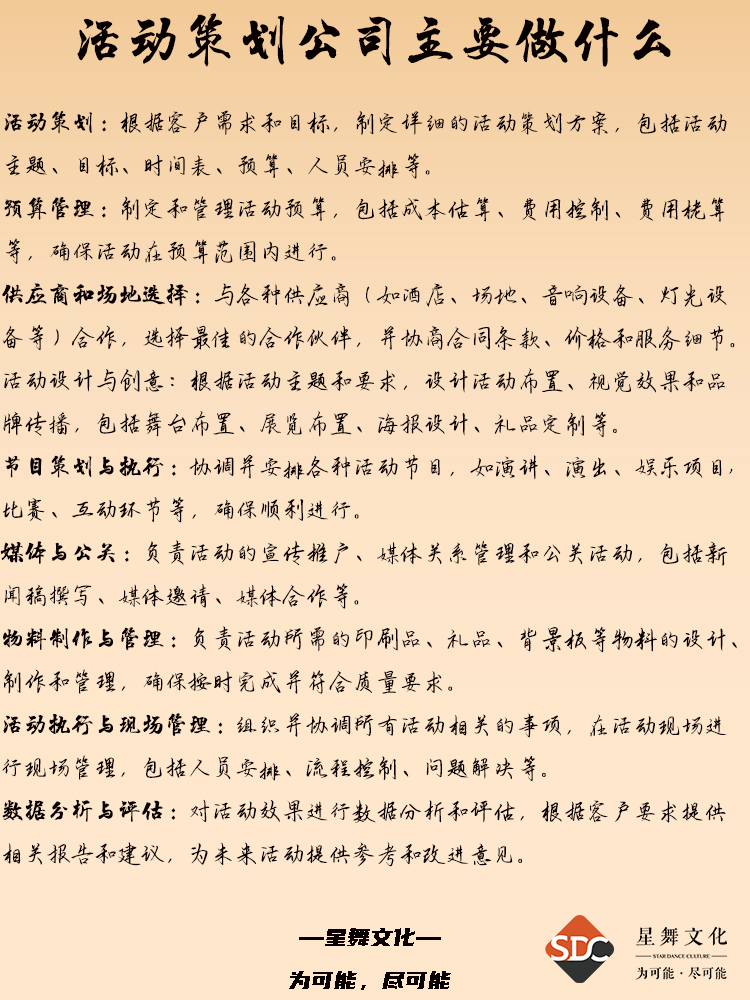 活动策划公司主要做什么
活动策划：根据客户需求和目标，制定详细的活动策划方案，包括活动
主题、目标、时间表、预算、人员安排等。
预算管理：制定和管理活动预算，包括成本估算、费用控制、费用核算
等，确保活动在预算范围内进行。
供应商和场地选择：与各种供应商（如酒店、场地、音响设备、灯光设
备等）合作，选择最佳的合作伙伴，并协商合同条款、价格和服务细节。
活动设计与创意：根据活动主题和要求，设计活动布置、视觉效果和品
牌传播，包括舞台布置、展览布置、海报设计、礼品定制等。
节目策划与执行：协调并安排各种活动节目，如演讲、演出、娱乐项目，
比赛、互动环节等，确保顺利进行。
媒体与公关：负责活动的宣传推广、媒体关系管理和公关活动，包括新
闻稿撰写、媒体邀请、媒体合作等。
物料制作与管理：负责活动所需的印刷品、礼品、背景板等物料的设计、
制作和管理，确保按时完成并符合质量要求。
活动执行与现场管理：组织并协调所有活动相关的事项，在活动现场进
行现场管理，包括人员安排、流程控制、问题解决等。
数据分析与评估：对活动效果进行数据分析和评估，根据客户要求提供
相关报告和建议，为未来活动提供参考和改进意见。
—星舞文化—
为可能，尽可能
SDC
星舞文化
STAR DANCE CULTURE
为可能·尽可能